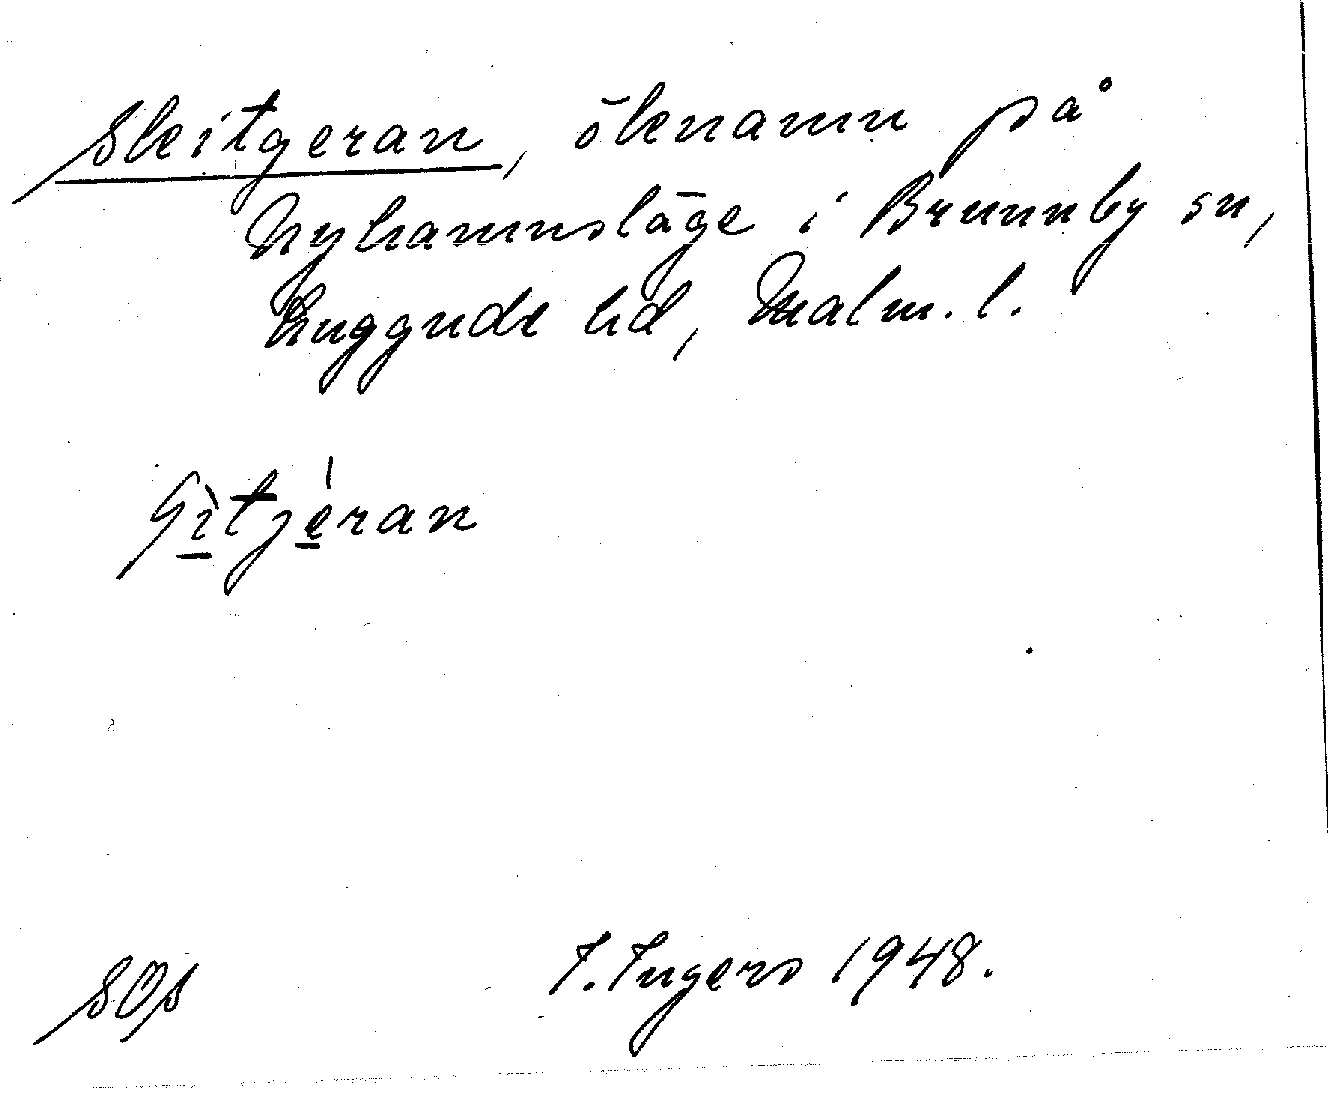 Skitgeran, öknamn på
Nyhamnsläge i Brunnby sn,
Luggude hd, Malm. l.
sìtjéran
SOs
I. Ingers 1948.